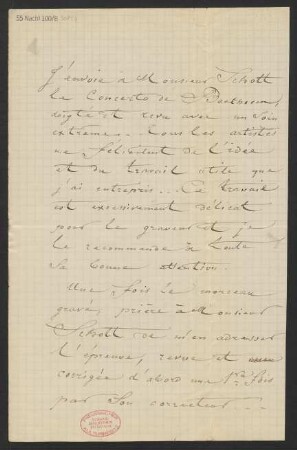 J'envoie à Monsieur Schott
le Concerto de Beethoven,
doigté et revu avec un soin
extrême. Tous les artistes
me félicitent de l'idée
et du travail utile que
j'ai entrepris. Ce travail
est excessivement délicat
pour le graveur et je
le recommande à toute
sa bonne attention.
Une fois le morceau
gravé, prière à Monsieur
Schott de m'en adresser
l'épreuve, revue et
corrigée d'abord une 1re fois
par son correcteur.